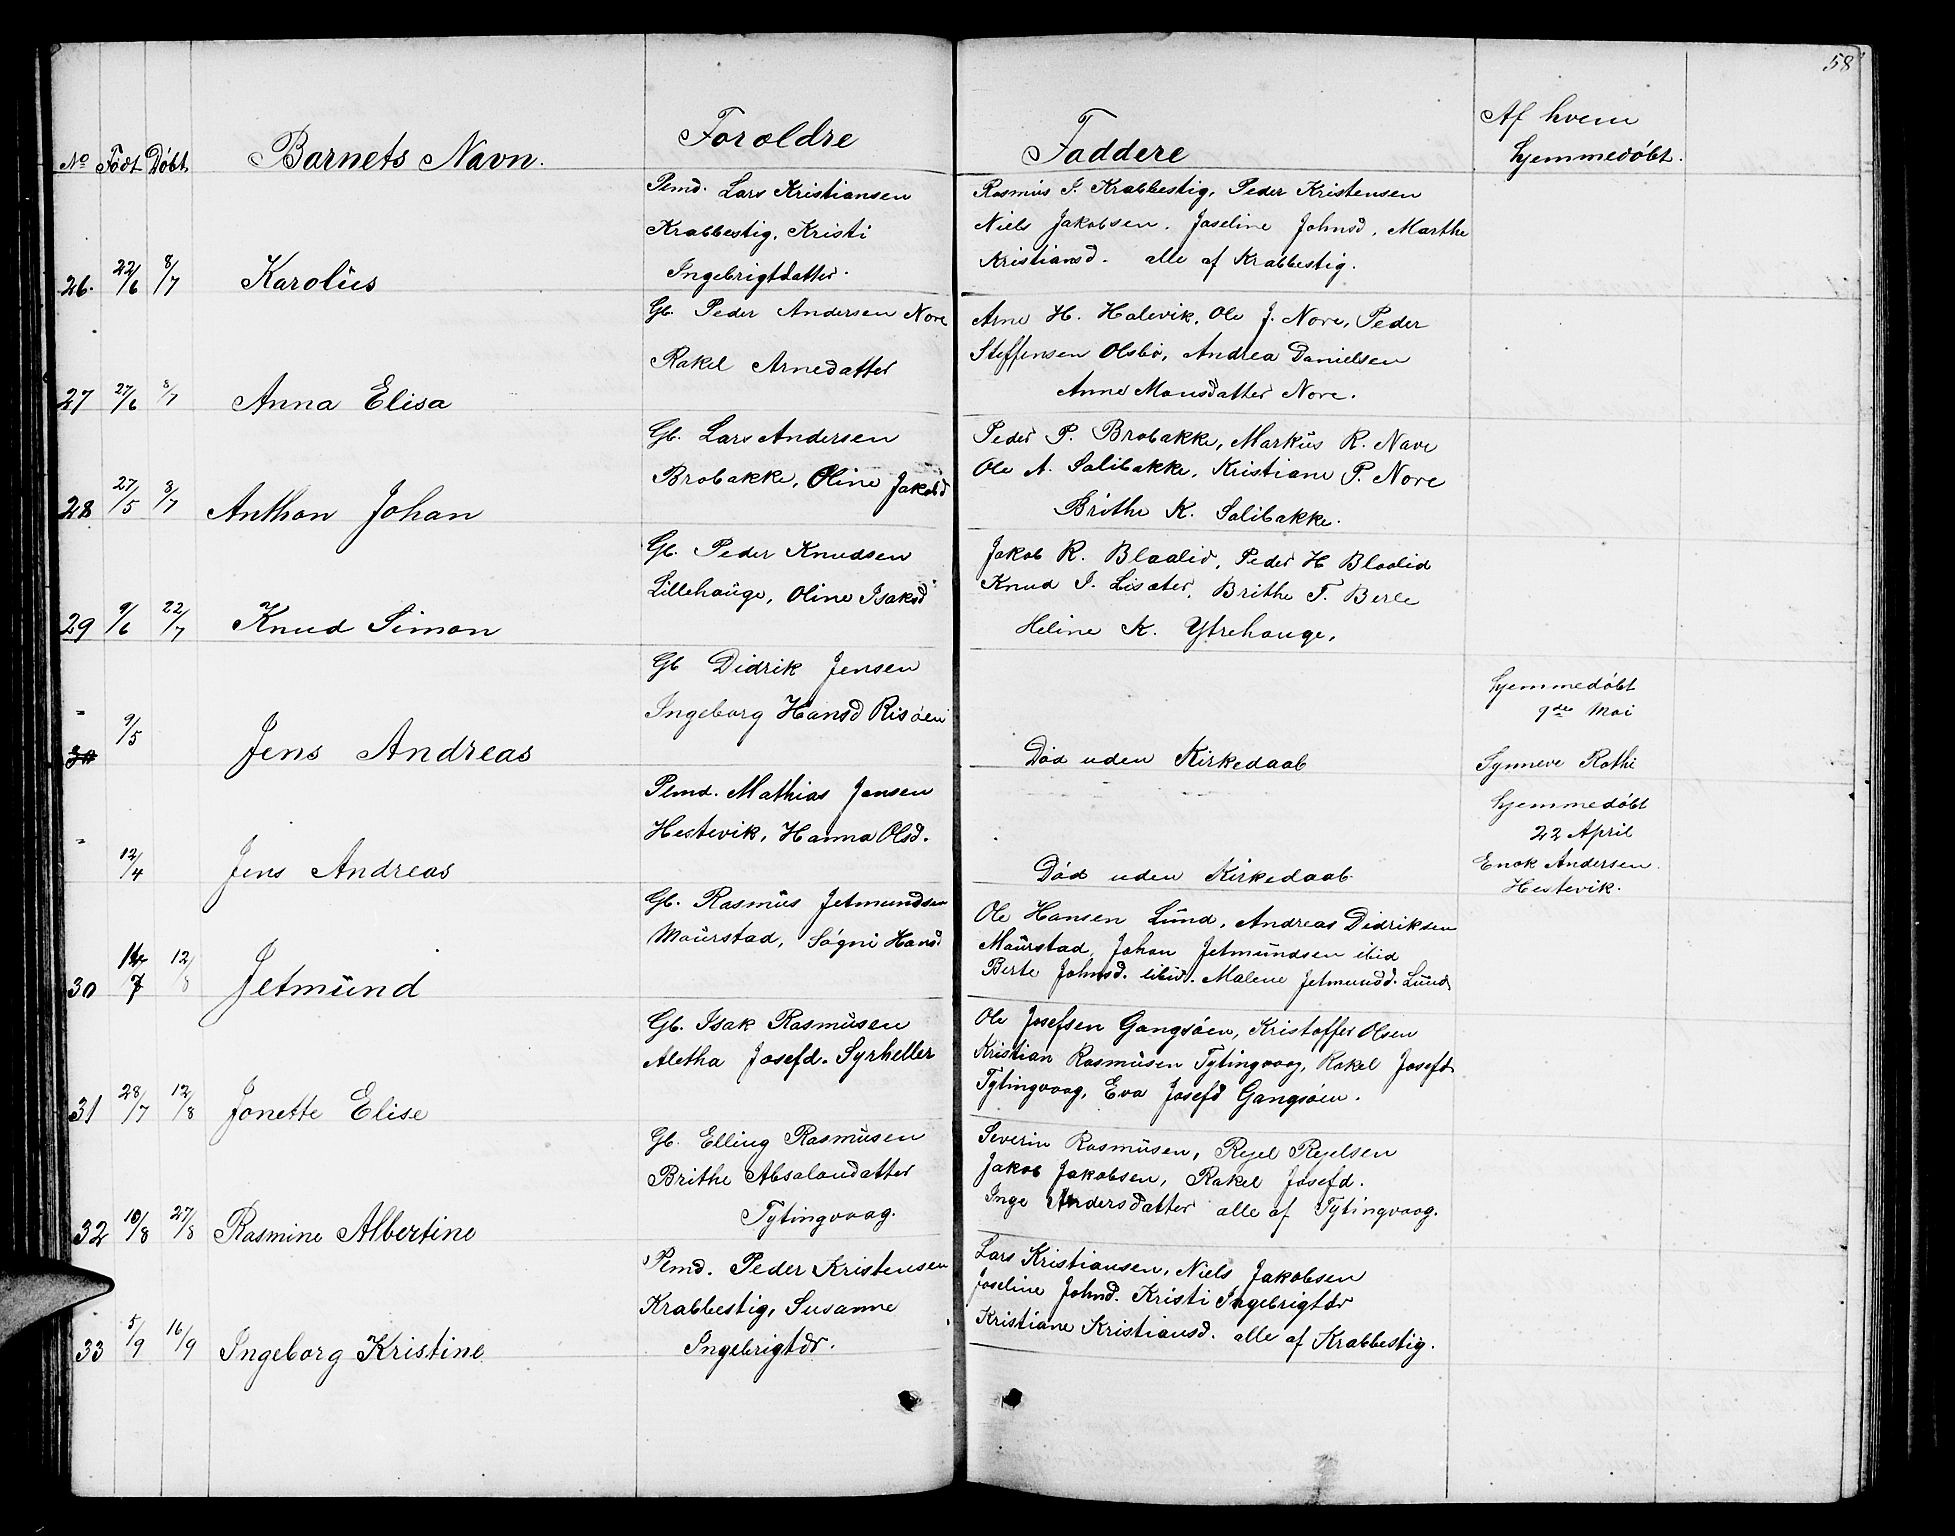 58
No Født Døbt Barnets Navn. Foroldre Faddere Af hvem hjemmedøbt.
26. 22/6 8/7 Karolus
Plmd. Lars Kristiansen
Krabbestig, Kristi
Ingebrigtdatter.
Rasmus I. Krabbestig, Peder Kristensen
Niels Jakobsen. Joseline Johnsd, Marthe
Kristiansd. alle af Krabbestig.
27 27/6 8/7 Anna Elisa
Gb. Peder Andersen Nore
Rakel Arnedatter
Arne H. Halevik, Ole J. Nore, Peder
Steffensen Olsbø, Andrea Danielsen
Anne Monsdatter Nore.
28 27/5 8/7 Anthon Johan
Gb. Lars Andersen
Brobakke, Oline Jakobd
Peder P. Brobakke, Markus R. Nave
Ole A. Salibakke, Kristiane P. Nore
Brithe K. Salibakke.
29 9/6 22/7 Knud Simon
Gb. Peder Knudsen
Lillehauge, Oline Isaksd
Jakob R. Blaalid, Peder H Blaalid
Knud I. Lisæter, Brithe T. Berle
Heline K. Ytrehauge.
30 9/5 Jens Andreas
Gb Didrik Jensen
Ingeborg Hansd Risøen
Død uden Kirkedaab
hjemmedøbt
9de Mai
Synneve Rothi
" 12/4 Jens Andreas
Plmd. Mathias Jansen
Hestevik, Hanna Olsd.
Død uden Kirkedaab.
hjemmedøbt
22 April
Enok Andersen.
Hestevik.
30 12/8 Jetmund
Gb. Rasmus Jetmundsen
Maurstad, Søgni Hansd
Ole Hansen Lund, Andreas Didriksen
Maurstad, Johan Jetmundsen ibid
Berte Johnsd. ibid. Malene Jetmundd. Lund
31 28/7 12/8 Jonette Elise
Gb. Isak Rasmusen
Aletha Josefd. Syrheller
Ole Josefsen Gangsøen, Kristoffer Olsen
Kristian Rasmusen Tytingvaag, Rakel Josefd
Tytingvaag, Eva Josefd Gangsøen.
32 10/8 27/8 Rasmine Albertine
Gb. Elling Rasmusen
Brithe Absalondatter
Tytingvaag.
Severin Rasmusen, Rejel Rejelsen
Jakob Jakobsen, Rakel Josefd.
Inge Andersdatter alle af Tytingvaag.
33 5/9 16/9 Ingeborg Kristine
Plmd. Peder Kristensen
Krabbestig, Susanne
Ingebrigtdr.
Lars Kristiansen, Niels Jakobsen
Joseline Johnd. Kristi Ingebrigtdr
Kristiane Kristiansd. alle af Krabbestig.